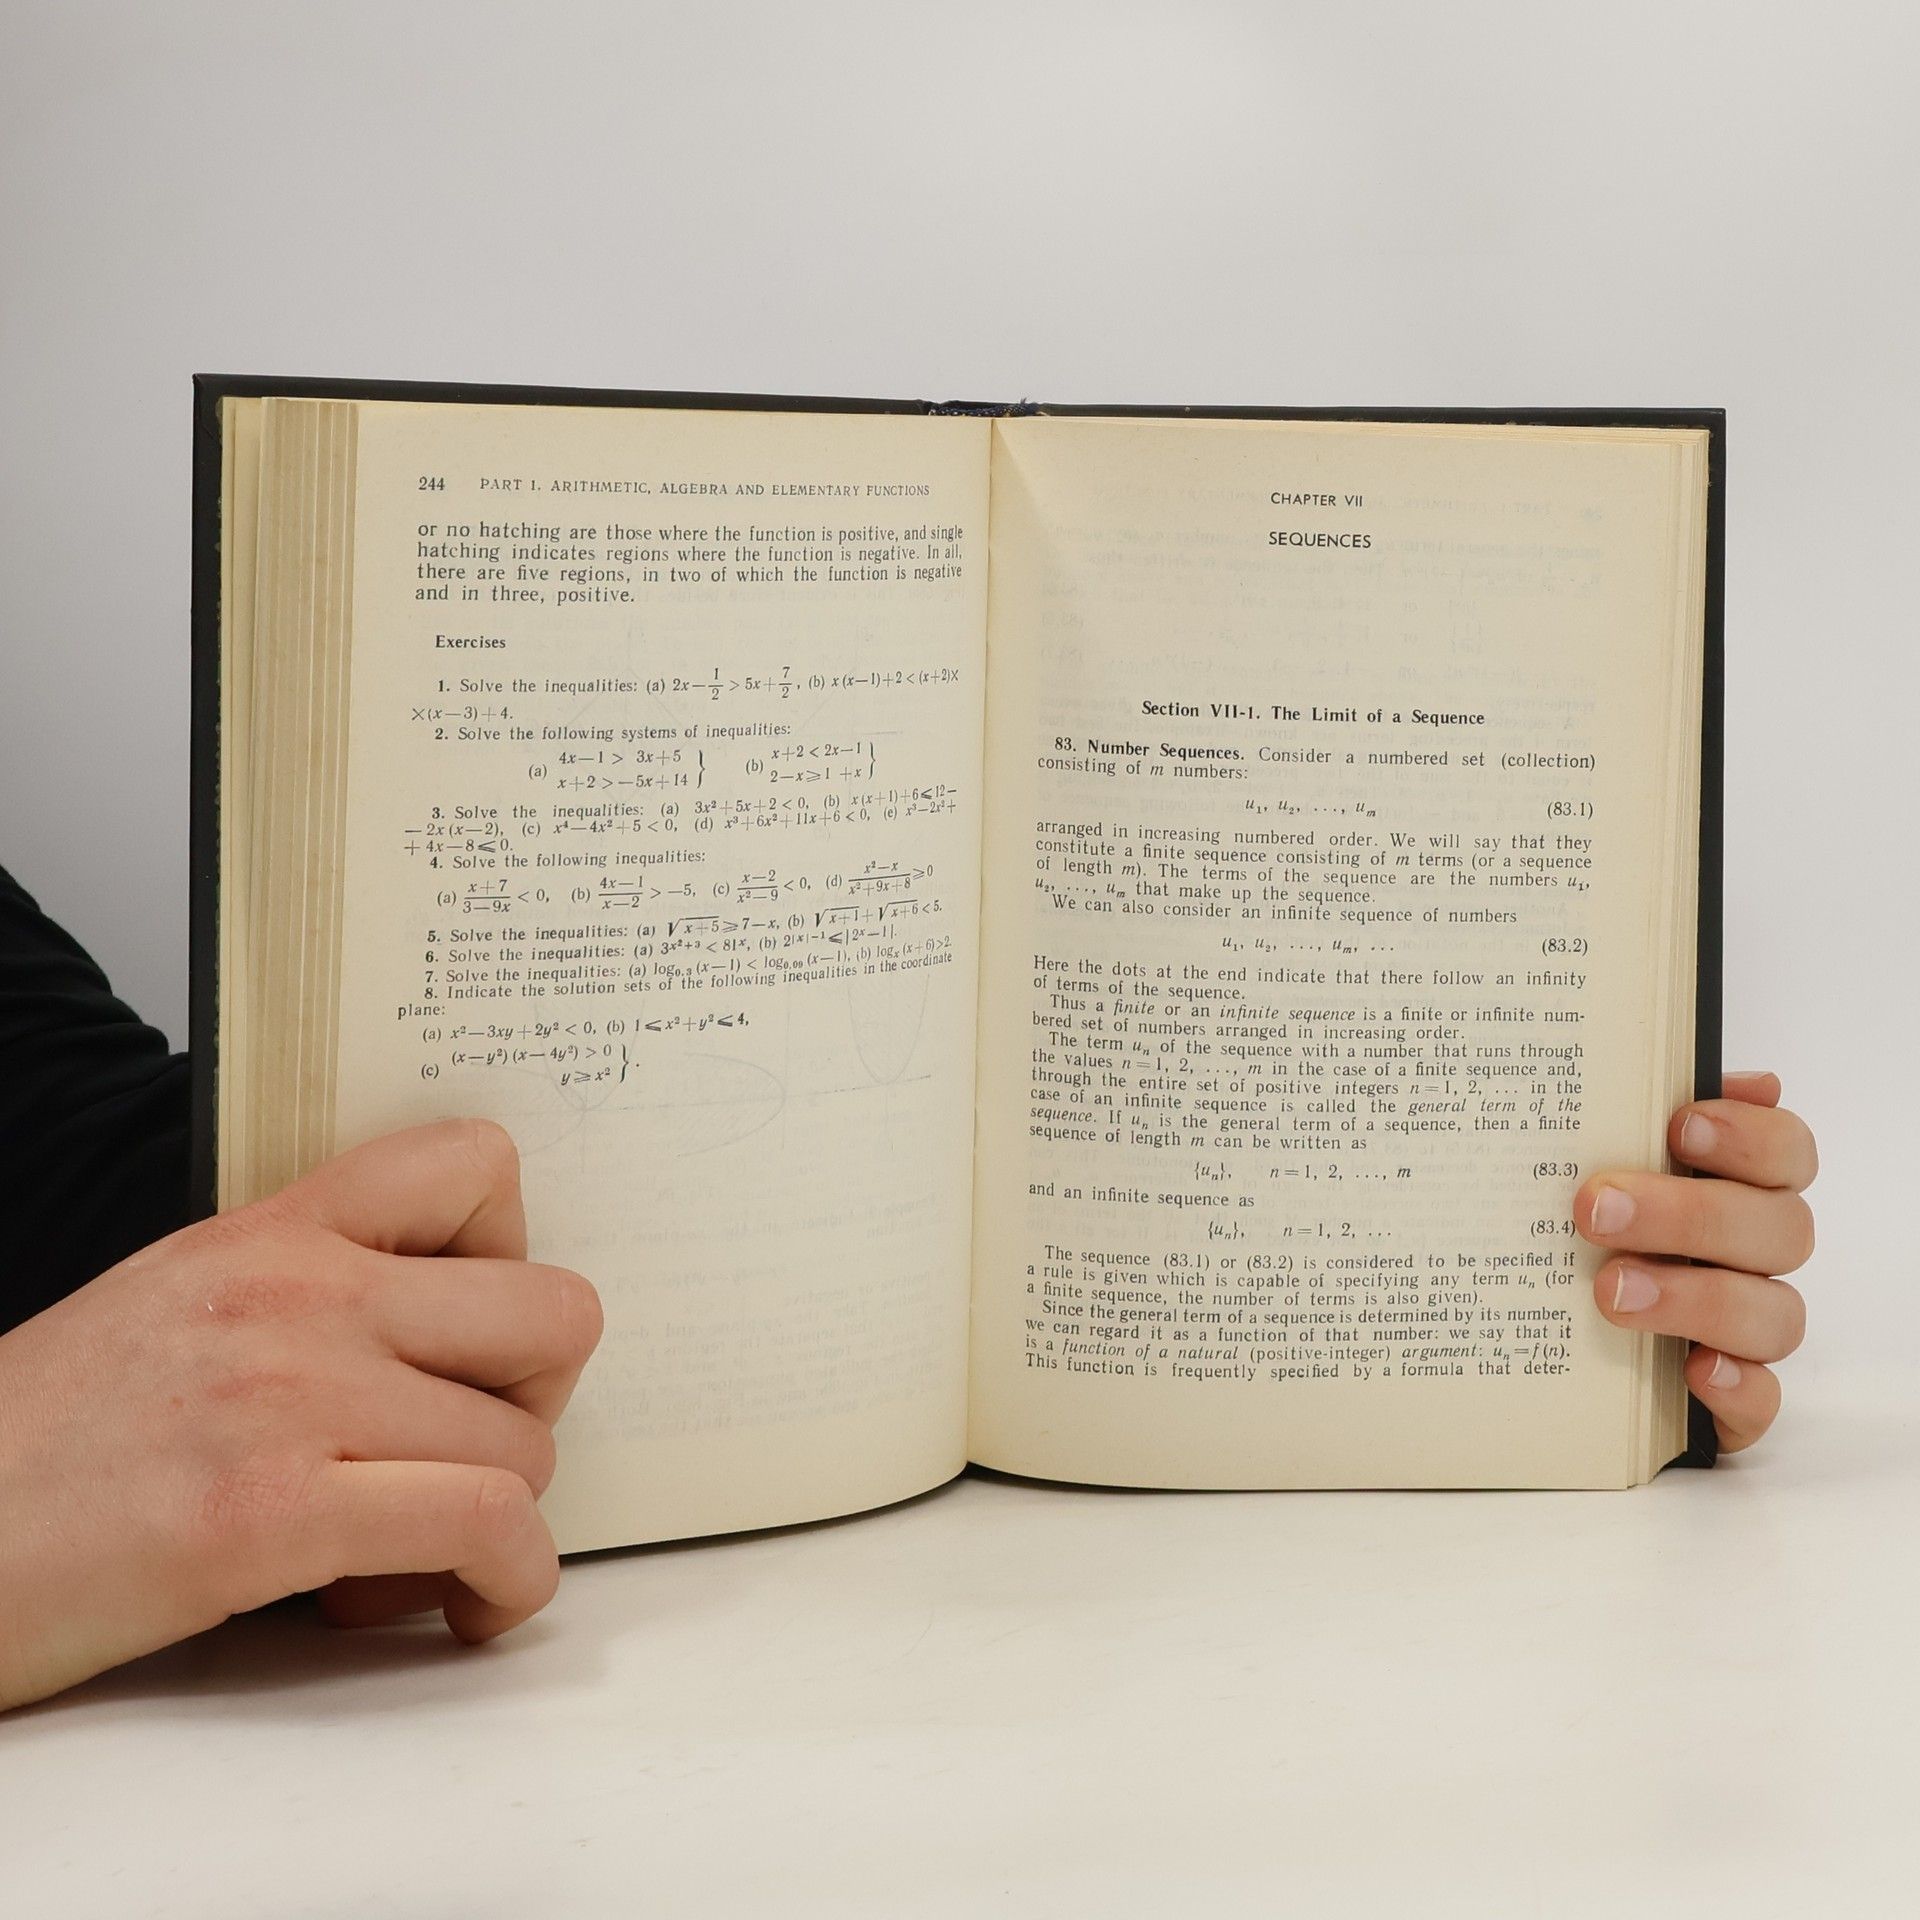 244 PART I. ARITHMETIC, ALGEBRA AND ELEMENTARY FUNCTIONS
or no hatching are those where the function is positive, and single
hatching indicates regions where the function is negative. In all,
there are five regions, in two of which the function is negative
and in three, positive.
Exercises
1. Solve the inequalities: (a) 2x — 1/2 > 5x + 7/2, (b) x (x—1)+2 < (x+2)×
×(x—3)+4.
2. Solve the following systems of inequalities:
(a) 4x—1 > 3x+5 } (b) x+2 < 2x—1 }
x+2 > —5x+14 2—x ⩾ 1 +x
3. Solve the inequalities: (a) 3x²+5x+2 < 0, (b) x(x+1)+6 ⩽ 12—
—2x (x—2), (c) x⁴—4x²+5 < 0, (d) x³+6x²+11x+6 < 0, (e) x³—2x²+
+ 4x—8 ⩽ 0.
4. Solve the following inequalities:
(a) (x+7)/(3—9x) < 0, (b) (4x—1)/(x—2) > —5, (c) (x—2)/(x²—9) < 0, (d) (x²—x)/(x²+9x+8) ⩾ 0
5. Solve the inequalities: (a) √(x+5) ⩾ 7—x, (b) √(x+1)+√(x+6) < 5.
6. Solve the inequalities: (a) 3^(x²+3) < 81ˣ, (b) 2^(|x|—1) ⩽ |2ˣ—1|.
7. Solve the inequalities: (a) log₀.₃ (x—1) < log₀.₀₉ (x—1), (b) logₓ (x+6)>2.
8. Indicate the solution sets of the following inequalities in the coordinate
plane:
(a) x²—3xy+2y² < 0, (b) 1 ⩽ x²+y² ⩽ 4,
(c) (x—y²) (x—4y²) > 0 } .
y ⩾ x²
CHAPTER VII
SEQUENCES
Section VII-1. The Limit of a Sequence
83. Number Sequences. Consider a numbered set (collection)
consisting of m numbers:
u₁, u₂, ..., uₘ (83.1)
arranged in increasing numbered order. We will say that they
constitute a finite sequence consisting of m terms (or a sequence
of length m). The terms of the sequence are the numbers u₁,
u₂, ..., uₘ that make up the sequence.
We can also consider an infinite sequence of numbers
u₁, u₂, ..., uₘ, ... (83.2)
Here the dots at the end indicate that there follow an infinity
of terms of the sequence.
Thus a finite or an infinite sequence is a finite or infinite num-
bered set of numbers arranged in increasing order.
The term uₙ of the sequence with a number that runs through
the values n=1, 2, ..., m in the case of a finite sequence and,
through the entire set of positive integers n=1, 2, ... in the
case of an infinite sequence is called the general term of the
sequence. If uₙ is the general term of a sequence, then a finite
sequence of length m can be written as
{uₙ}, n=1, 2, ..., m (83.3)
and an infinite sequence as
{uₙ}, n=1, 2, ... (83.4)
The sequence (83.1) or (83.2) is considered to be specified if
a rule is given which is capable of specifying any term uₙ (for
a finite sequence, the number of terms is also given).
Since the general term of a sequence is determined by its number,
we can regard it as a function of that number: we say that it
is a function of a natural (positive-integer) argument: uₙ=f(n).
This function is frequently specified by a formula that deter-